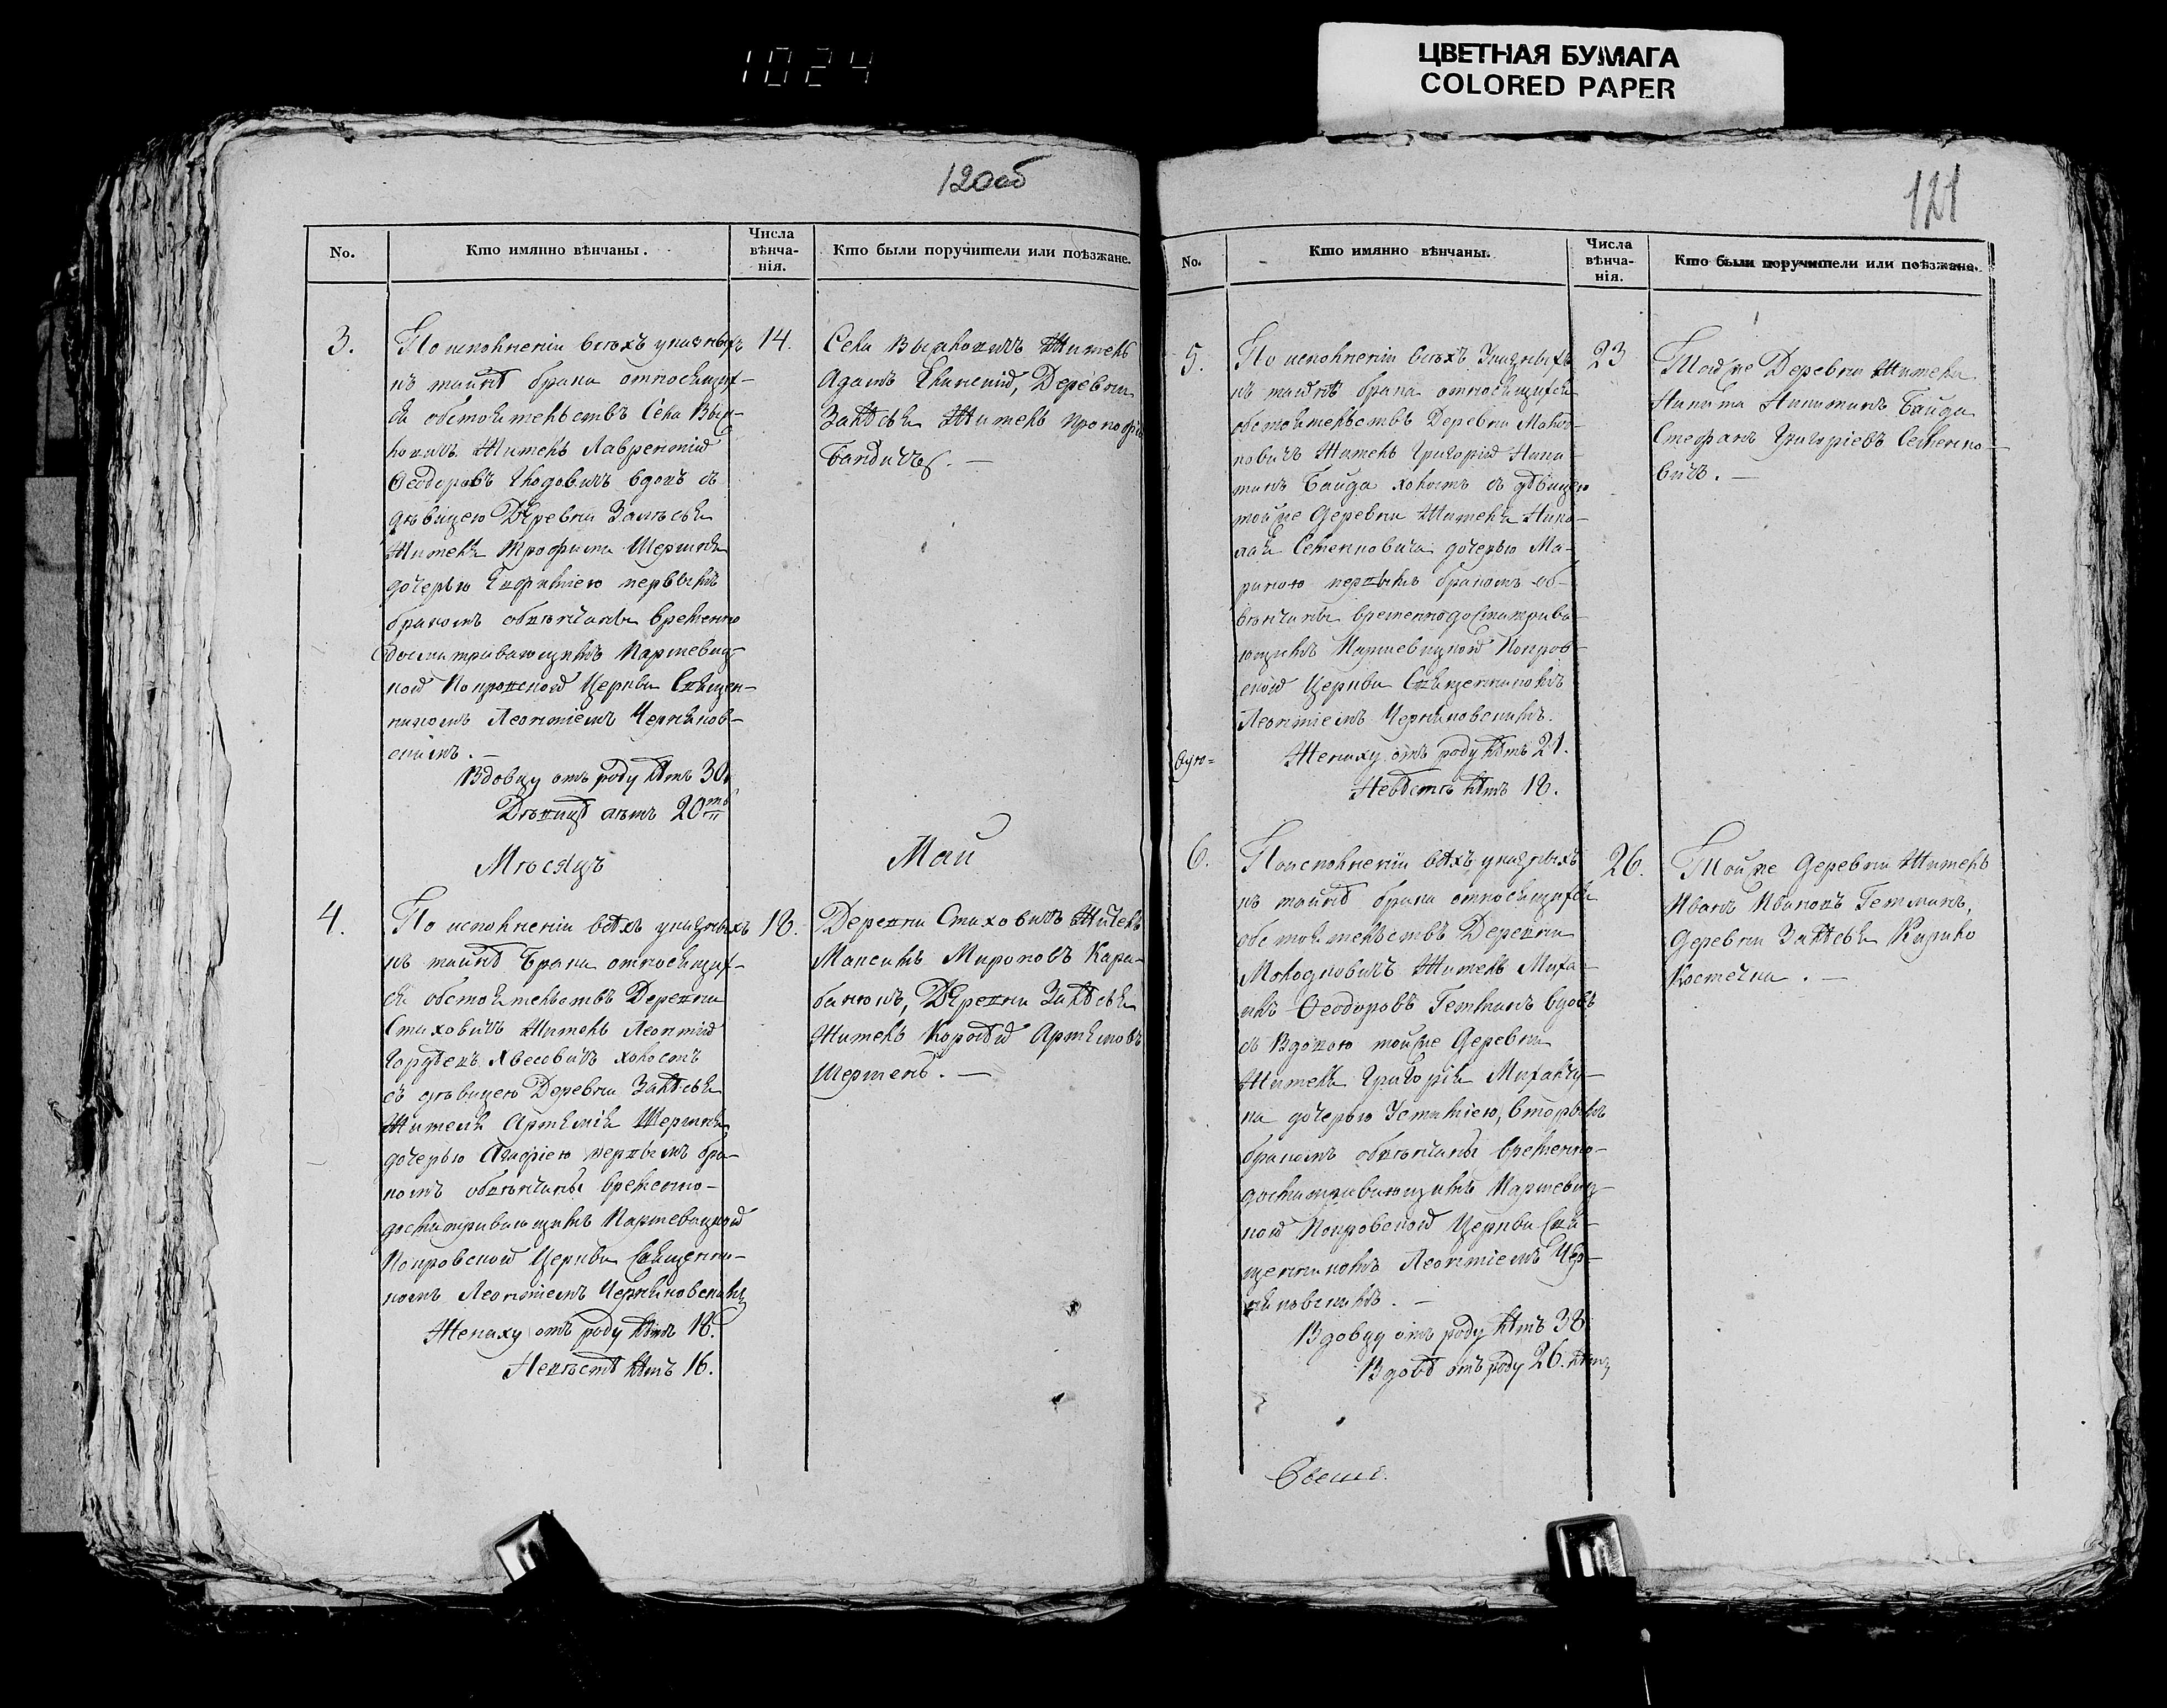 1024
ЦВЕТНАЯ БУМАГА
COLORED PAPER
120об
No.
Кто имянно вѣнчаны.
Числа вѣнча-нія.
Кто были поручители или поѣзжане.
3.
По исполненіи всѣхъ указныхъ
къ тайнѣ брака относящих-
ся обстоятельствъ Села Выл-
Житель Лаврентій
Ѳеодоровъ вдовъ съ
дѣвицею Деревни Залѣсья
Жителя Трофима Шершня
дочерью Евфиміею первымъ
бракомъ обвѣнчаны временно
досматривающимъ Каршевиц-
кой Покровской Церкви Священ-
никомъ Леонтіемъ Черняков-
скимъ. —
Вдовцу отъ роду лѣтъ 30.
Дѣвицѣ лѣтъ 20ть
14.
Села Житель
Адамъ Деревни
Залѣсья Житель
Бандичъ. —
Мѣсяцъ
Май
4.
По исполненіи всѣхъ указныхъ
къ тайнѣ Брака относящих-
ся обстоятельствъ Деревни
Стаховичъ Житель Леонтій
Гордѣевъ холостъ
съ дѣвицею Деревни Залѣсья
Жителя Артемія Шершня
дочерью Агафіею первымъ бра-
комъ обвѣнчаны временно-
досматривающимъ Каршевицкой
Покровской Церкви Священни-
комъ Леонтіемъ Черняковскимъ
Жениху отъ роду лѣтъ 18.
Невѣстѣ лѣтъ 16.
18.
Деревни Стаховичъ Житель
Максимъ Мироновъ Кара-
банюкъ, Деревни Залѣсья
Житель Корнѣй Артемовъ
Шершень. —
121
No.
Кто имянно вѣнчаны.
Числа вѣнча-нія.
Кто были поручители или поѣзжане.
5.
По исполненіи всѣхъ Указныхъ
къ тайнѣ брака относящихся
обстоятельствъ Деревни Молод-
ковичъ Житель Григорій Ники-
тинъ Байда холостъ съ дѣвицею
тойже Деревни Жителя Нико-
лая Семеновича дочерью Ма-
риною первымъ бракомъ об-
вѣнчаны временнодосматрива-
ющимъ Каршевицкой Покров-
ской Церкви Священникомъ
Леонтіемъ Черняковскимъ.
Жениху отъ роду лѣтъ 21.
Невѣстѣ лѣтъ 18.
23
Тойже Деревни Жители
Никита Никитинъ Байда
Стефанъ Григоріевъ Семено-
вичъ. —
6.
По исполненіи всѣхъ указныхъ
къ тайнѣ брака относящихся
обстоятельствъ Деревни
Молодковичъ Житель Миха-
илъ Ѳеодоровъ Гетманъ вдовъ
съ Вдовою тойже Деревни
Жителя Григорія Михальчу-
ка дочерью Устиніею, вторымъ
бракомъ обвѣнчаны временно-
досматривающимъ Каршевиц-
кой Покровской Церкви Свя-
щенникомъ Леонтіемъ Чер-
няковскимъ. —
Вдовцу отъ роду лѣтъ 38
Вдовѣ отъ роду 26. лѣтъ
26.
Тойже Деревни Житель
Иванъ Ивановъ Гетманъ,
Деревни Залѣсья Кирило
Костечка. —